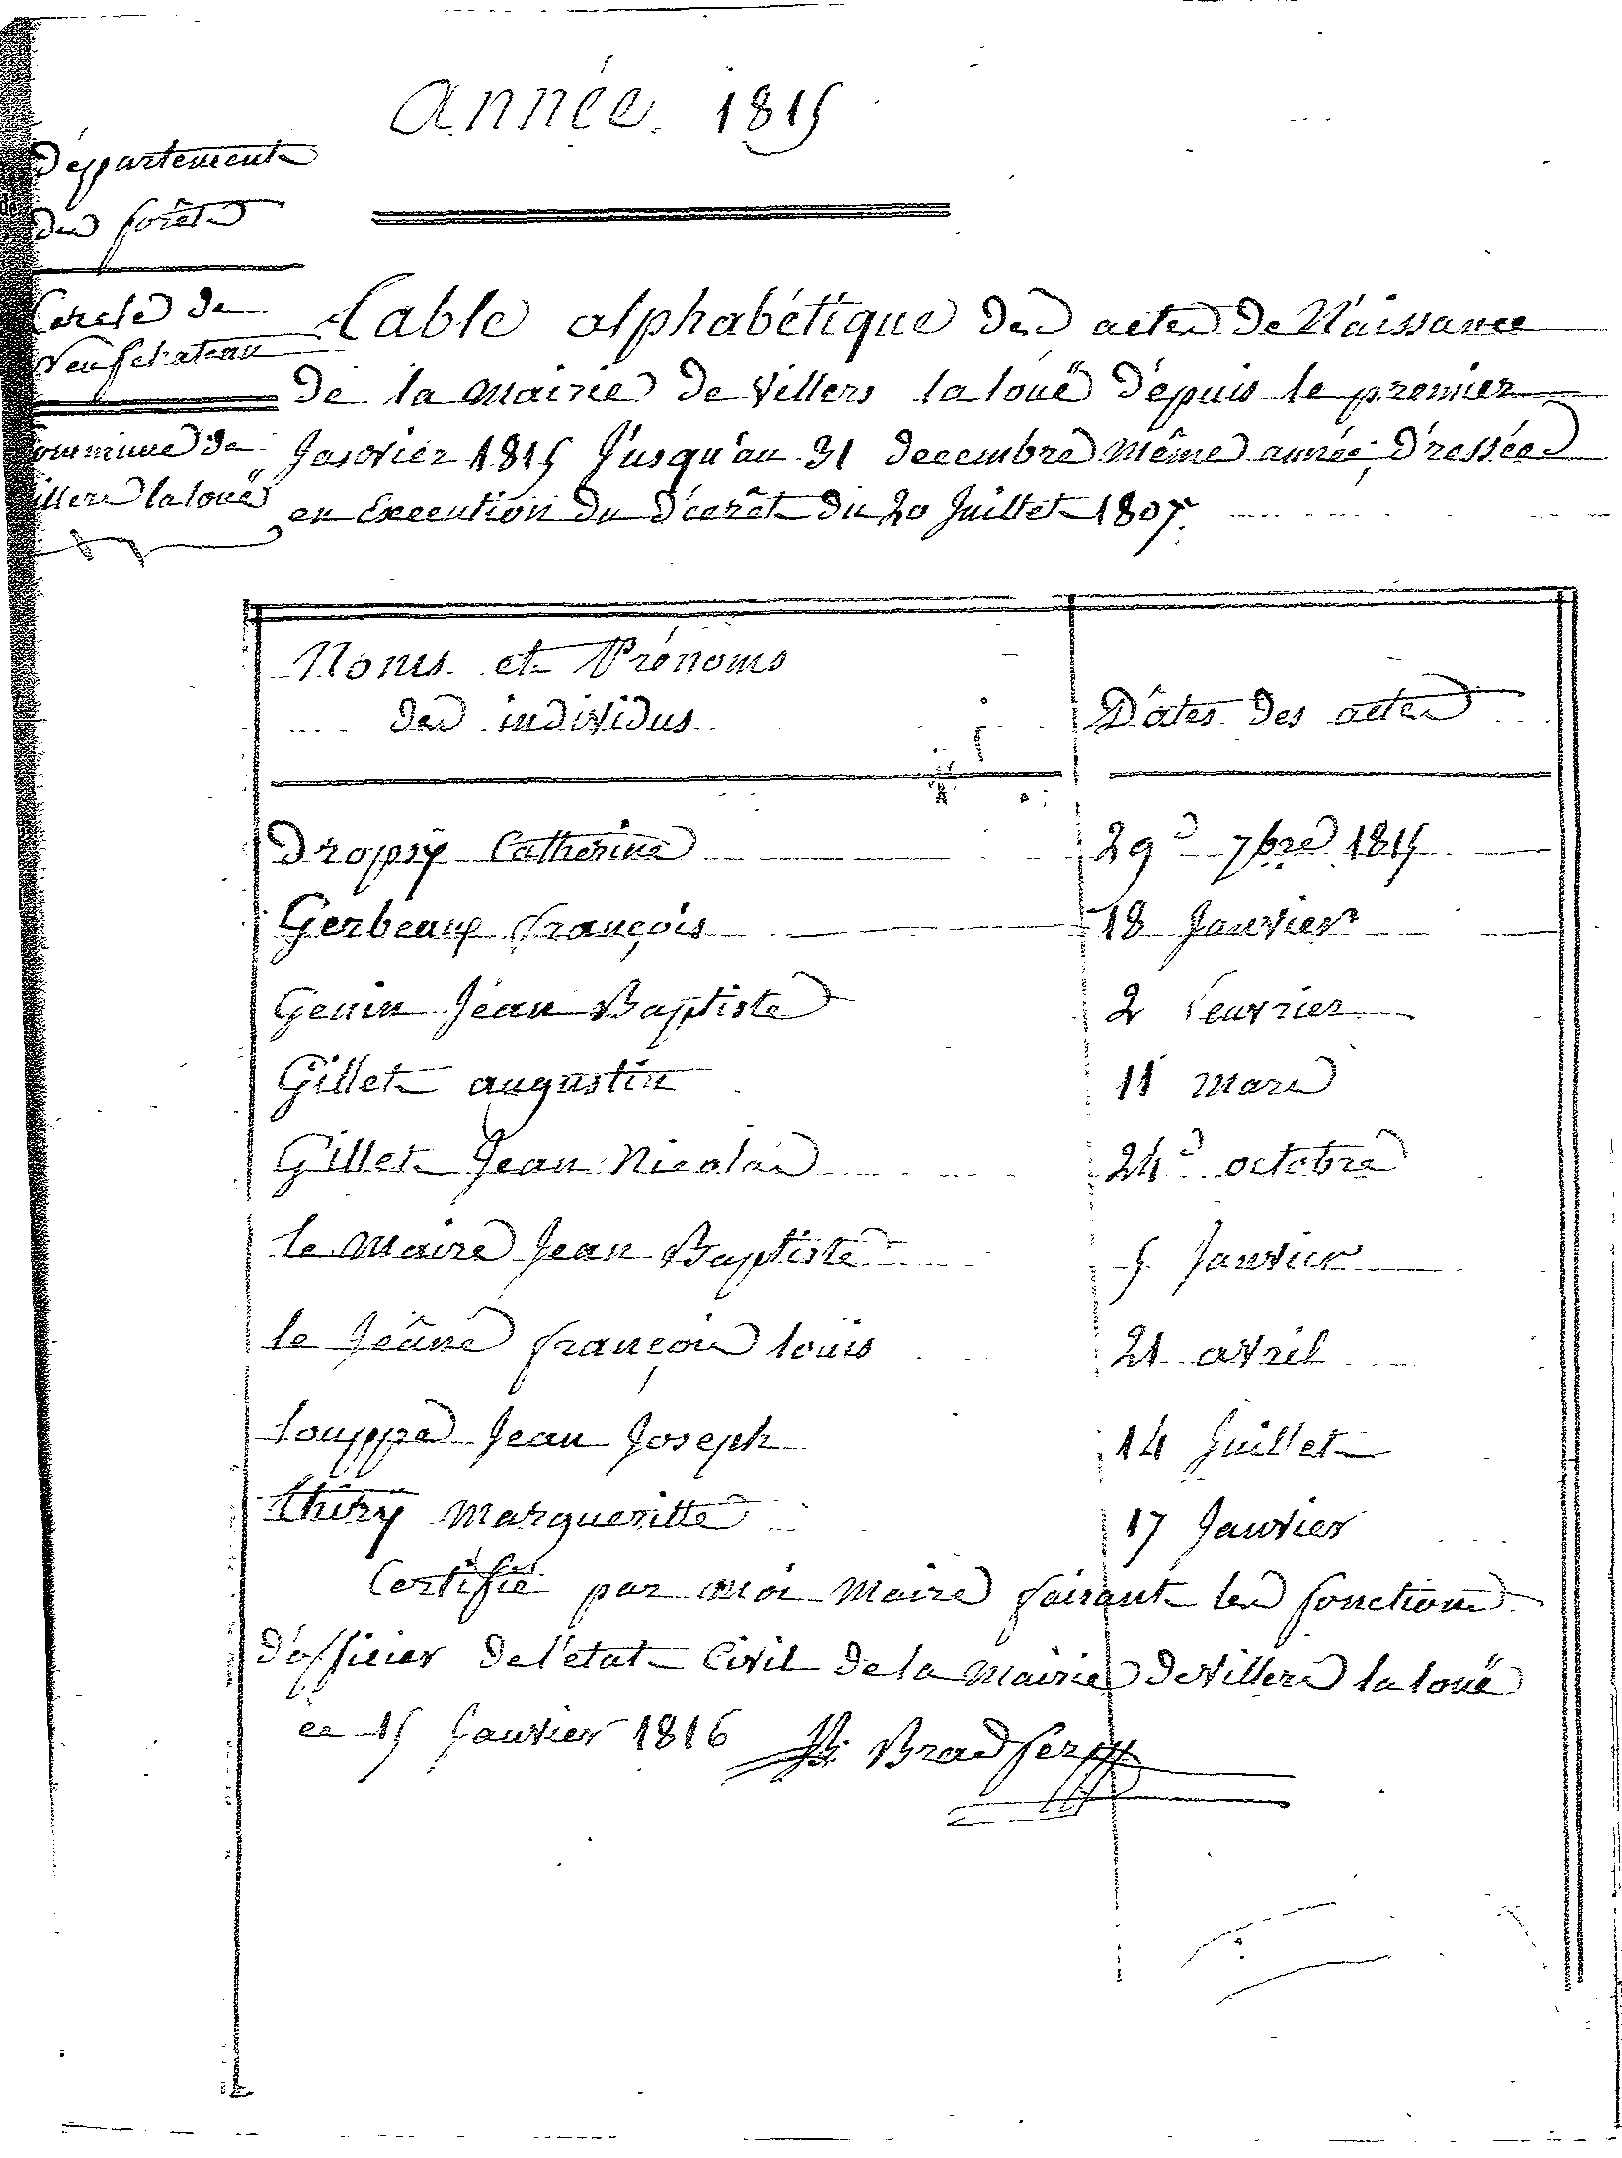 année 1815
Département
des forêts
Cercle de
Neufchateau
Commune de
Villers la loüe
Table alphabétique des actes de Naissance
de la Mairie de Villers la loüe dépuis le premier
Janvier 1815 Jusqu'au 31 decembre Même année, dressée
en Execution du décrêt du 20 Juillet 1807
Noms et Prénoms
des individus
Dâtes des actes
Dropsÿ Catherine 29e 7bre 1815
Gerbeaux françois 18 Janvier
Genin Jean Baptiste 2 feuvrier
Gillet augustin 11 mars
Gillet Jean Nicolas 24e octobre
le Maire Jean Baptiste 5 Janvier
le Jeûne françois louis 21 avril
louppe Jean Joseph 14 Juillet
thiry Margueritte 17 Janvier
Certifié par moi Maire faisant les fonctions
d'officier de l'état Civil de la Mairie de Villers la loüe
ce 15 Janvier 1816